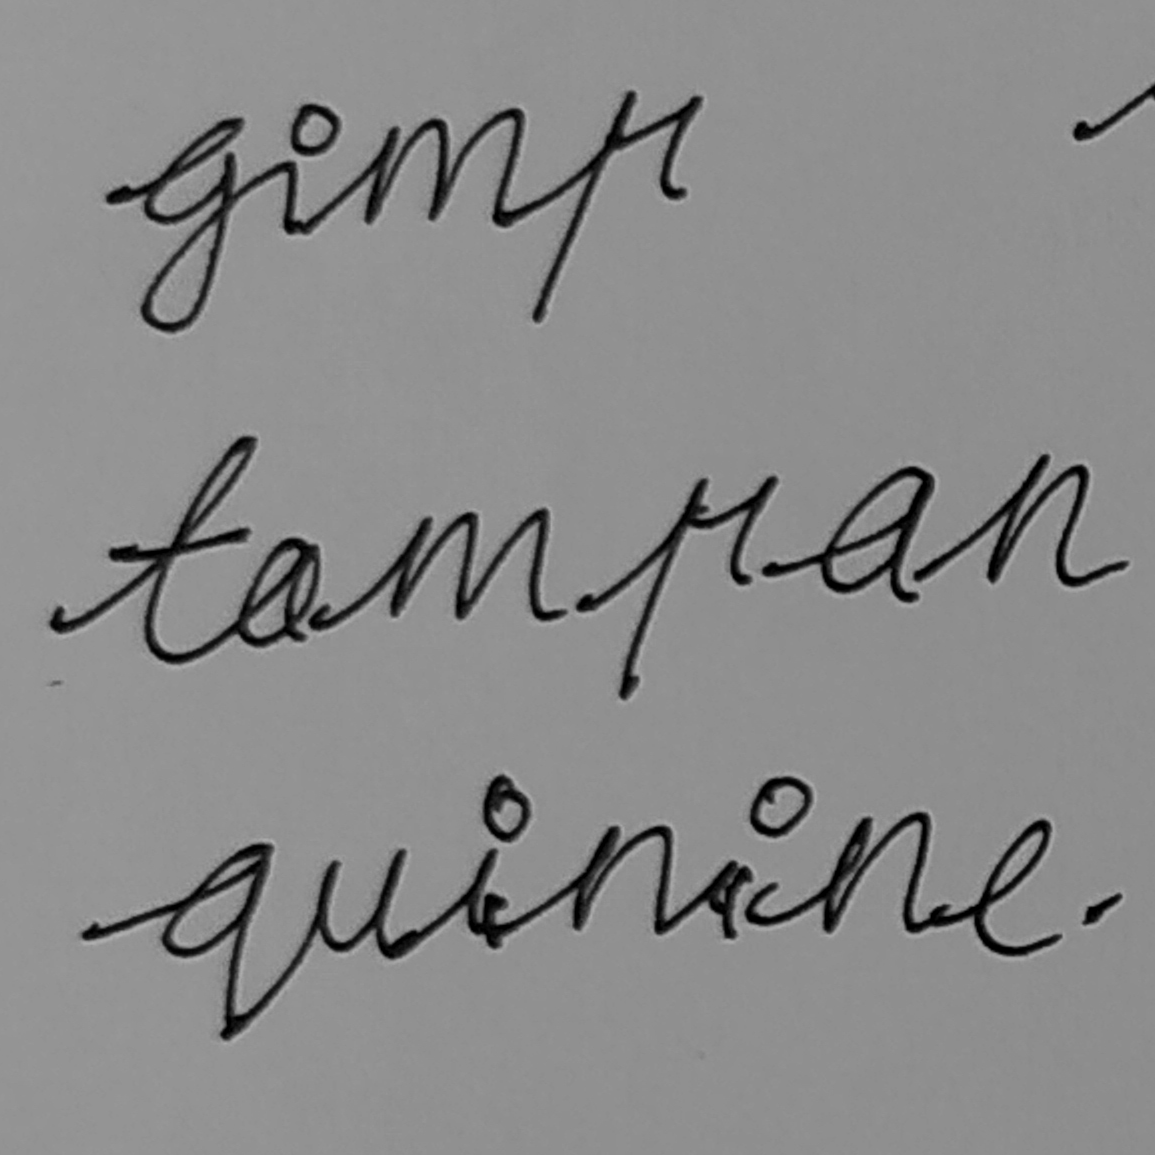 gimp
tampan
quinine